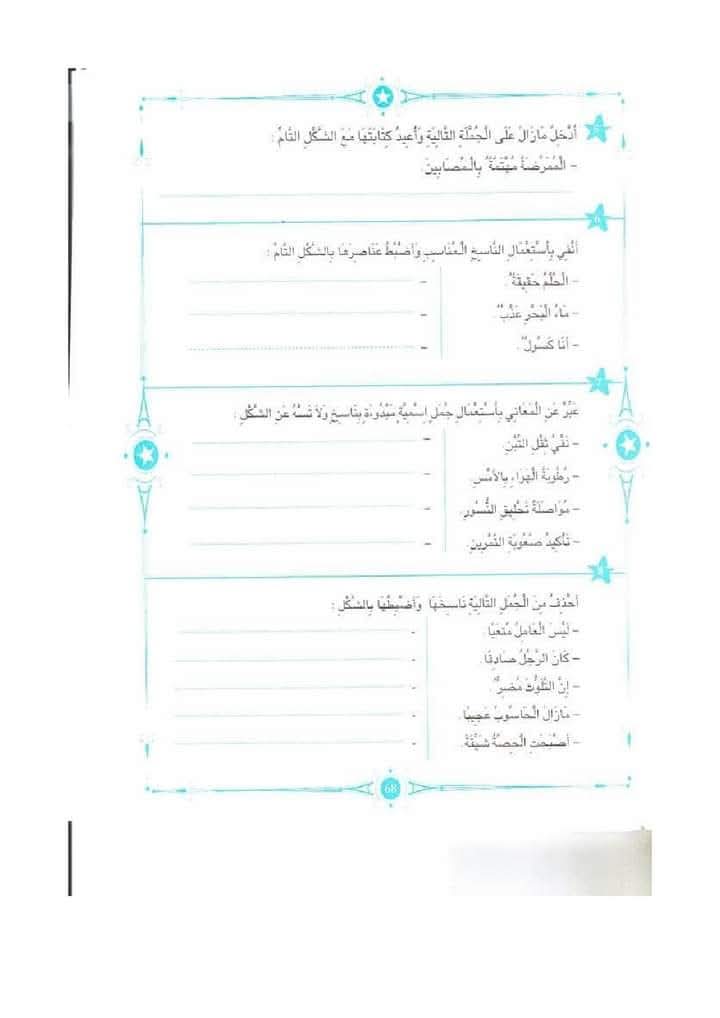 5
أُدْخِلُ مَازَالَ عَلَى الْجُمْلَةِ التَّالِيَةِ وَأُعِيدُ كِتَابَتَهَا مَعَ الشَّكْلِ التَّامِّ :
- الْمُمَرِّضَةُ مُهْتَمَّةٌ بِالْمُصَابِينَ.
6
أَنْفِي بِاسْتِعْمَالِ النَّاسِخِ الْمُنَاسِبِ وَأَضْبِطُ عَنَاصِرَهَا بِالشَّكْلِ التَّامِّ :
- الْحُلْمُ حَقِيقَةٌ.
- مَاءُ الْبَحْرِ عَذْبٌ.
- أَنَا كَسُولٌ.
7
عَبِّرْ عَنِ الْمَعَانِي بِاسْتِعْمَالِ جُمَلٍ اِسْمِيَّةٍ مَبْدُوءَةٍ بِنَاسِخٍ وَلَا تَسْهُ عَنِ الشَّكْلِ :
- نَفْيُ ثِقْلِ التِّبْنِ.
- رُطُوبَةُ الْهَوَاءِ بِالْأَمْسِ.
- مُوَاصَلَةُ تَحْلِيقِ النُّسُورِ.
- تَأْكِيدُ صُعُوبَةِ التَّمْرِينِ.
أَحْذِفُ مِنَ الْجُمَلِ التَّالِيَةِ نَاسِخَهَا وَأَضْبِطُهَا بِالشَّكْلِ :
- لَيْسَ الْعَامِلُ مُتْعَبًا.
- كَانَ الرَّجُلُ صَادِقًا.
- إِنَّ التَّلَوُّثَ مُضِرٌّ.
- مَازَالَ الْحَاسُوبُ عَجِيبًا.
- أَصْبَحَتِ الْحِصَّةُ شَيِّقَةً.
68